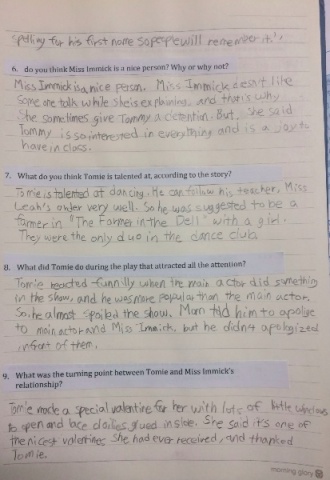 spelling for his first name so people will remember it.
6. do you think Miss Immick is a nice person? Why or why not?
Miss Immick is a nice person. Miss Immick doesn't like
someone talks while She is explaining, and that's why
She sometimes give Tommy a detention. But, She said
Tommy is so interested in everything and is a joy to
have in class.
7. What do you think Tomie is talented at, according to the story?
Tomie is talented at dancing. He can follow his teacher, Miss
Leah's order very well. So he was suggested to be a
farmer in "The Farmer in the Dell" with a girl.
They were the only duo in the dance club
8. What did Tomie do during the play that attracted all the attention?
Tomie reacted funnily when the main actor did something
in the show, and he was more popular than the main actor.
So, he almost spoiled the show. Mom told him to apologize
to main actor and Miss Immick, but he didn't apologized
infront of them.
9. What was the turning point between Tomie and Miss Immick's
relationship?
Tomie made a special valentine for her with lots of little windows
to open and lace doilies glued inside. She said it's one of
the nicest valentines She had ever received, and thanked
Tomie.
morning glory